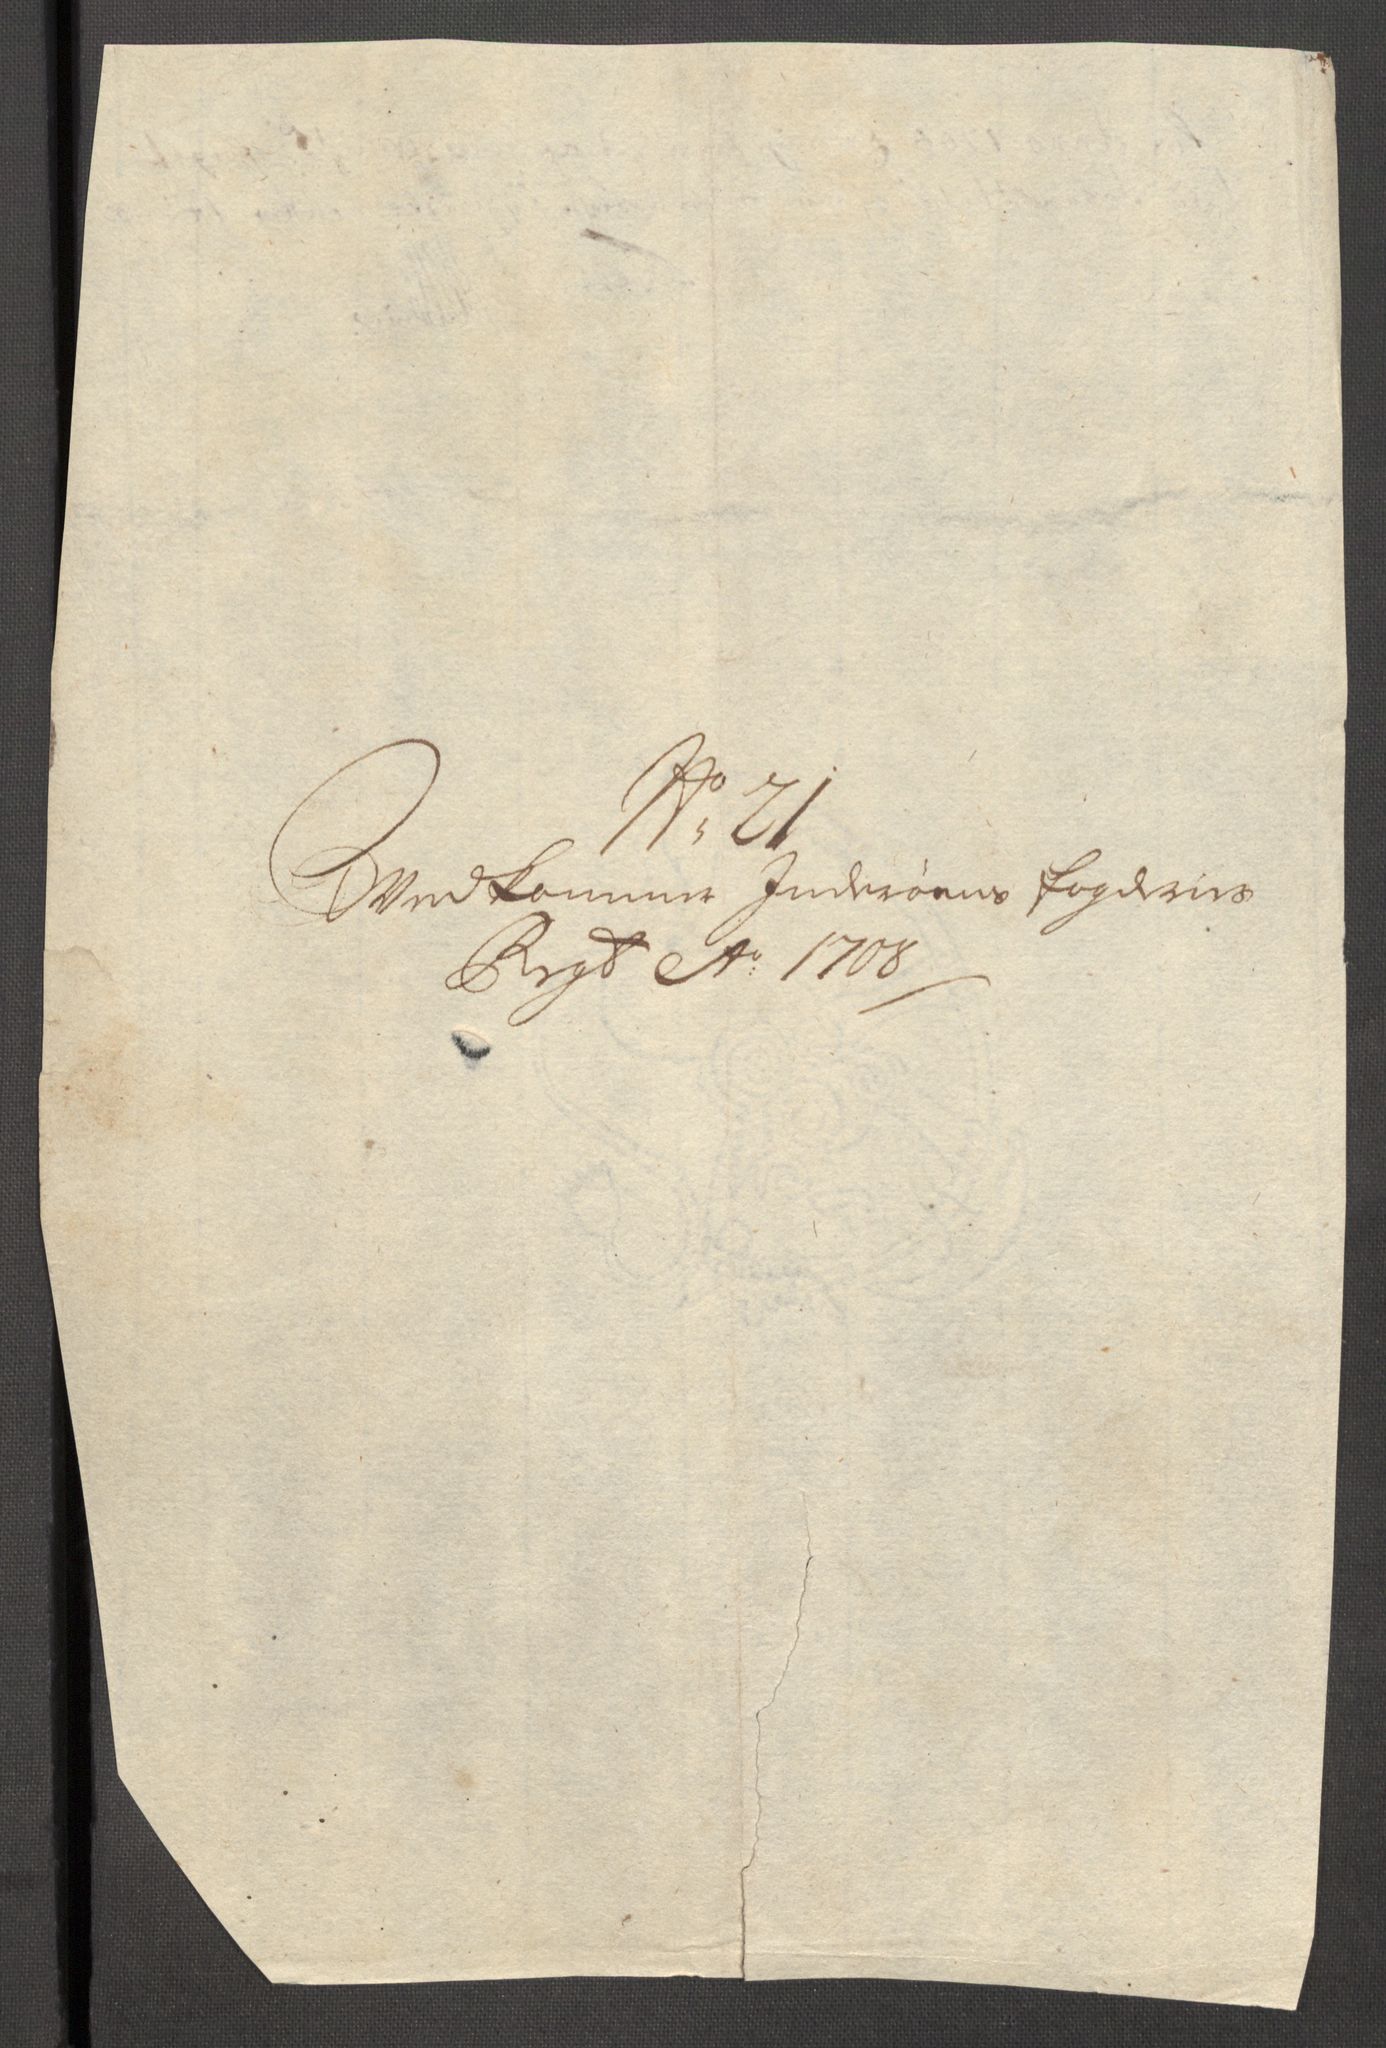 No 21
Vedkommer Inderöens fogderies
Regb Ao 1708